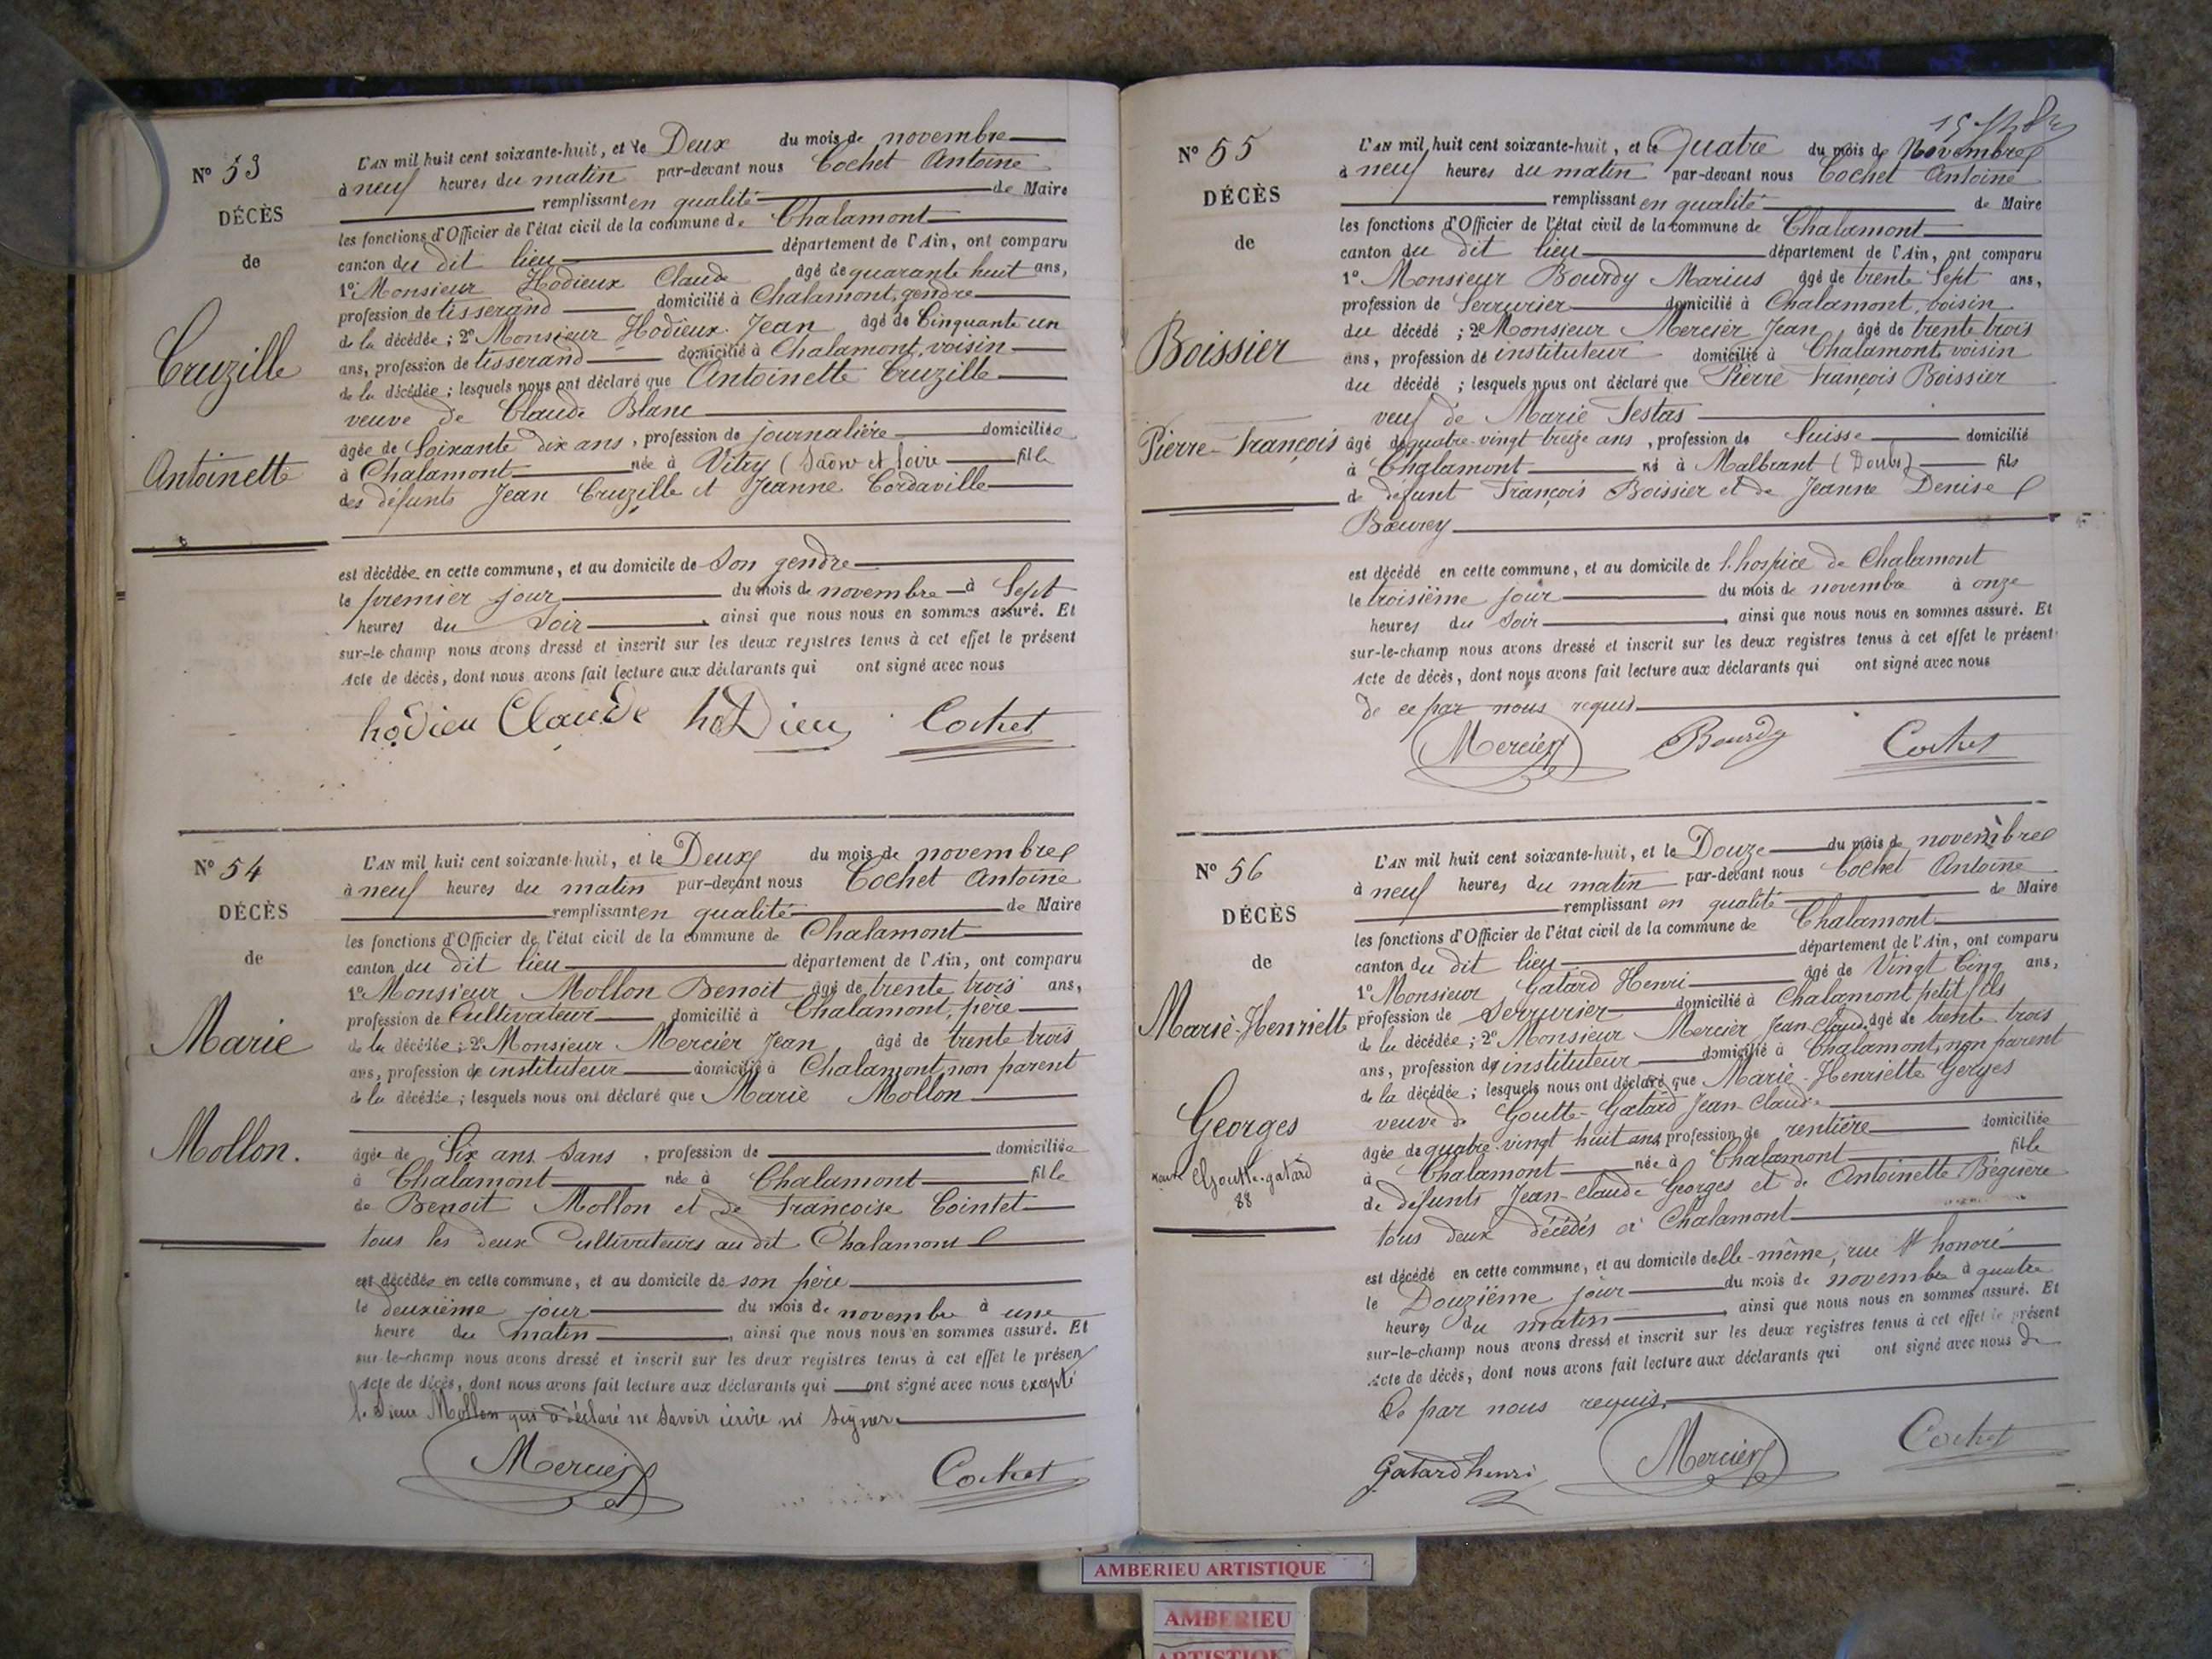 N° 53
DÉCÈS
de
Cruzille
Antoinette
L'AN mil huit cent soixante-huit, et le Deux du mois de novembre
à neuf heures du matin par-devant nous Cochet Antoine
remplissant en qualité de Maire
les fonctions d'Officier de l'état civil de la commune de Chalamont
canton du dit lieu département de l'Ain, ont comparu
1° Monsieur Hodieux Claude âgé de quarante huit ans,
profession de tisserand domicilié à Chalamont, gendre
de la décédée ; 2° Monsieur Hodieux Jean âgé de Cinquante un
ans, profession de tisserand domicilié à Chalamont, voisin
de la décédée ; lesquels nous ont déclaré que Antoinette Cruzille
veuve de Claude Blanc
âgée de Soixante dix ans, profession de journalière domiciliée
à Chalamont née à Vitry (Saône et Loire fille
des défunts Jean Cruzille et Jeanne Cordaville
est décédée en cette commune, et au domicile de son gendre
le premier jour du mois de novembre à Sept
heures du Soir, ainsi que nous nous en sommes assuré. Et
sur-le-champ nous avons dressé et inscrit sur les deux registres tenus à cet effet le présent
Acte de décès, dont nous avons fait lecture aux déclarants qui ont signé avec nous
hodieu Claude hodieu Cochet
N° 54
DÉCÈS
de
Marie
Mollon.
L'AN mil huit cent soixante-huit, et le Deux du mois de novembre
à neuf heures du matin par-devant nous Cochet Antoine
remplissant en qualité de Maire
les fonctions d'Officier de l'état civil de la commune de Chalamont
canton du dit lieu département de l'Ain, ont comparu
1° Monsieur Mollon Benoit âgé de trente trois ans,
profession de Cultivateur domicilié à Chalamont, père
de la décédée ; 2° Monsieur Mercier Jean âgé de trente trois
ans, profession de instituteur domicilié à Chalamont, non parent
de la décédée ; lesquels nous ont déclaré que Marie Mollon
âgée de Six ans Sans, profession de domiciliée
à Chalamont née à Chalamont fille
de Benoit Mollon et de Françoise Cointet
tous les deux Cultivateurs au dit Chalamont
est décédée en cette commune, et au domicile de son père
le deuxième jour du mois de novembre à une
heure du matin, ainsi que nous nous en sommes assuré. Et
sur-le-champ nous avons dressé et inscrit sur les deux registres tenus à cet effet le présen
Acte de décès, dont nous avons fait lecture aux déclarants qui ont signé avec nous excepté
le Sieur Mollon qui a déclaré ne Savoir écrire ni Signer
Mercier Cochet
N° 55
DÉCÈS
de
Boissier
Pierre-François
L'AN mil huit cent soixante-huit, et le Quatre du mois de Novembre
à neuf heures du matin par-devant nous Cochet Antoine
remplissant en qualité de Maire
les fonctions d'Officier de l'état civil de la commune de Chalamont
canton du dit lieu département de l'Ain, ont comparu
1° Monsieur Bourdy Marius âgé de trente Sept ans,
profession de Serrurier domicilié à Chalamont, voisin
du décédé ; 2° Monsieur Mercier Jean, âgé de trente trois
ans, profession de instituteur domicilié à Chalamont, voisin
du décédé ; lesquels nous ont déclaré que Pierre François Boissier
veuf de Marie Testas
âgé de quatre-vingt treize ans, profession de Suisse domicilié
à Chalamont né à Malbrant (Doubs) fils
de défunt François Boissier et de Jeanne Denise
Bœurey
est décédé en cette commune, et au domicile de l'hospice de Chalamont
le troisième jour du mois de novembre à onze
heures du Soir, ainsi que nous nous en sommes assuré. Et
sur-le-champ nous avons dressé et inscrit sur les deux registres tenus à cet effet le présent
Acte de décès, dont nous avons fait lecture aux déclarants qui ont signé avec nous
de ce par nous requis
Mercier Bourdy Cochet
N° 56
DÉCÈS
de
Marie-Henriette
Georges
veuve Goutte-gatard
88
L'AN mil huit cent soixante-huit, et le Douze du mois de novembre
à neuf heures du matin par-devant nous Cochet Antoine
remplissant en qualité de Maire
les fonctions d'Officier de l'état civil de la commune de Chalamont
canton du dit lieu département de l'Ain, ont comparu
1° Monsieur Gatard Henri âgé de Vingt Cinq ans,
profession de Serrurier domicilié à Chalamont petit fils
de la décédée ; 2° Monsieur Mercier Jean-Claude âgé de trente trois
ans, profession de instituteur domicilié à Chalamont, non parent
de la décédée ; lesquels nous ont déclaré que Marie-Henriette Gerges
veuve de Goutte-Gatard Jean-Claude
âgée de quatre-vingt huit ans, profession de rentière domiciliée
à Chalamont née à Chalamont fille
de défunts Jean-Claude Georges et de Antoinette Béguère
tous deux décédés à Chalamont
est décédé en cette commune, et au domicile delle-même, rue St honoré
le Douzième jour du mois de novembre à quatre
heures du matin, ainsi que nous nous en sommes assuré. Et
sur-le-champ nous avons dressé et inscrit sur les deux registres tenus à cet effet le présent
Acte de décès, dont nous avons fait lecture aux déclarants qui ont signé avec nous de
Ce par nous requis.
Gatard henri Mercier Cochet
AMBERIEU ARTISTIQUE
AMBERIEU
ARTISTIQUE